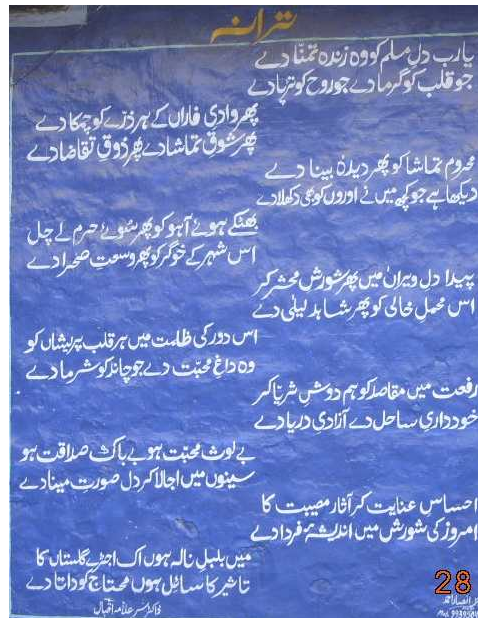 ترانہ
یارب دلِ مسلم کو وہ زندہ تمنّا دے
جو قلب کو گرما دے جو روح کو تڑپا دے
پھر وادی فاراں کے ہر ذرّے کو چمکا دے
پھر شوقِ تماشا دے پھر ذوقِ تقاضا دے
محروم تماشا کو پھر دیدۂ بینا دے
دیکھا ہے جو کچھ میں نے اوروں کو بھی دکھلا دے
بھٹکے ہوئے آہو کو پھر سُوئے حرم لے چل
اس شہر کے خوگر کو پھر وسعتِ صحرا دے
پیدا دلِ ویراں میں پھر شورشِ محشر کر
اس محملِ خالی کو پھر شاہدِ لیلیٰ دے
اس دور کی ظلمت میں ہر قلب پریشاں کو
وہ داغِ محبّت دے جو چاند کو شرما دے
رفعت میں مقاصد کو ہم دوشِ ثریّا کر
خودداریِ ساحل دے آزادیِ دریا دے
بے لوث محبّت ہو بے باک صداقت ہو
سینوں میں اجالا کر دل صورتِ مینا دے
احساس عنایت کر آثار مصیبت کا
امروز کی شورش میں اندیشۂ فردا دے
میں بلبلِ نالہ ہوں اک اجڑے گلستاں کا
تاثیر کا سائل ہوں محتاج کو داتا دے
ڈاکٹر سر علامہ اقبال
28